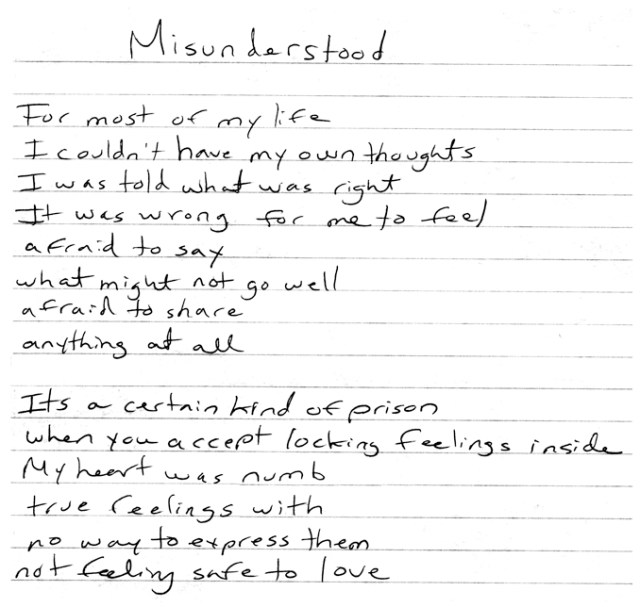 Misunderstood
For most of my life
I couldn't have my own thoughts
I was told what was right
It was wrong for me to feel
afraid to say
what might not go well
afraid to share
anything at all
Its a certain kind of prison
when you accept locking feelings inside
My heart was numb
true feelings with
no way to express them
not feeling safe to love